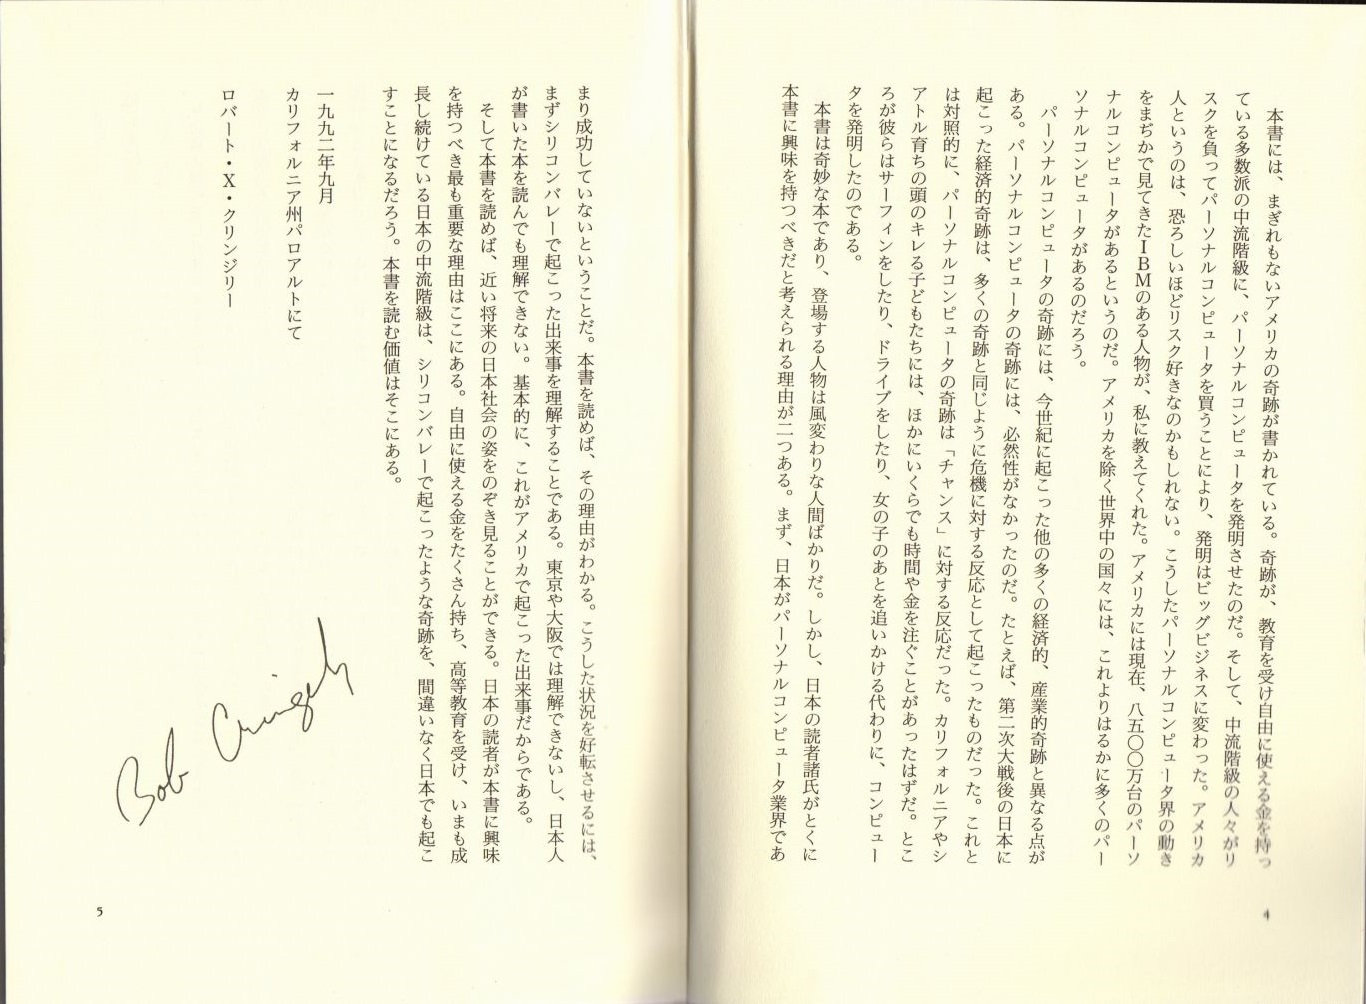 本書には、まぎれもないアメリカの奇跡が書かれている。奇跡が、教育を受け自由に使える金を持っ
ている多数派の中流階級に、パーソナルコンピュータを発明させたのだ。そして、中流階級の人々がリ
スクを負ってパーソナルコンピュータを買うことにより、発明はビッグビジネスに変わった。アメリカ
人というのは、恐ろしいほどリスク好きなのかもしれない。こうしたパーソナルコンピュータ界の動き
をまぢかで見てきたIBMのある人物が、私に教えてくれた。アメリカには現在、八五〇〇万台のパーソ
ナルコンピュータがあるというのだ。アメリカを除く世界中の国々には、これよりはるかに多くのパー
ソナルコンピュータがあるのだろう。
パーソナルコンピュータの奇跡には、今世紀に起こった他の多くの経済的、産業的奇跡と異なる点が
ある。パーソナルコンピュータの奇跡には、必然性がなかったのだ。たとえば、第二次大戦後の日本に
起こった経済的奇跡は、多くの奇跡と同じように危機に対する反応として起こったものだった。これと
は対照的に、パーソナルコンピュータの奇跡は「チャンス」に対する反応だった。カリフォルニアやシ
アトル育ちの頭のキレる子どもたちには、ほかにいくらでも時間や金を注ぐことがあったはずだ。とこ
ろが彼らはサーフィンをしたり、ドライブをしたり、女の子のあとを追いかける代わりに、コンピュー
タを発明したのである。
本書は奇妙な本であり、登場する人物は風変わりな人間ばかりだ。しかし、日本の読者諸氏がとくに
本書に興味を持つべきだと考えられる理由が二つある。まず、日本がパーソナルコンピュータ業界であ
4
まり成功していないということだ。本書を読めば、その理由がわかる。こうした状況を好転させるには、
まずシリコンバレーで起こった出来事を理解することである。東京や大阪では理解できないし、日本人
が書いた本を読んでも理解できない。基本的に、これがアメリカで起こった出来事だからである。
そして本書を読めば、近い将来の日本社会の姿をのぞき見ることができる。日本の読者が本書に興味
を持つべき最も重要な理由はここにある。自由に使える金をたくさん持ち、高等教育を受け、いまも成
長し続けている日本の中流階級は、シリコンバレーで起こったような奇跡を、間違いなく日本でも起こ
すことになるだろう。本書を読む価値はそこにある。
一九九二年九月
カリフォルニア州パロアルトにて
ロバート・X・クリンジリー
Bob Cringely
5